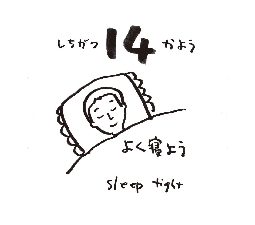 しちがつ 14 かよう
よく寝よう
sleep tight